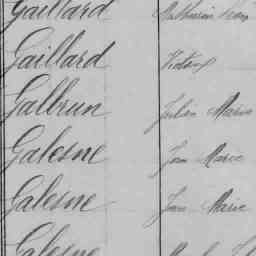 Gaillard Mathurin Jean
Gaillard Victor
Galbrun Julien Marie
Galesne Jean Marie
Galesne Jean Marie
Galesne